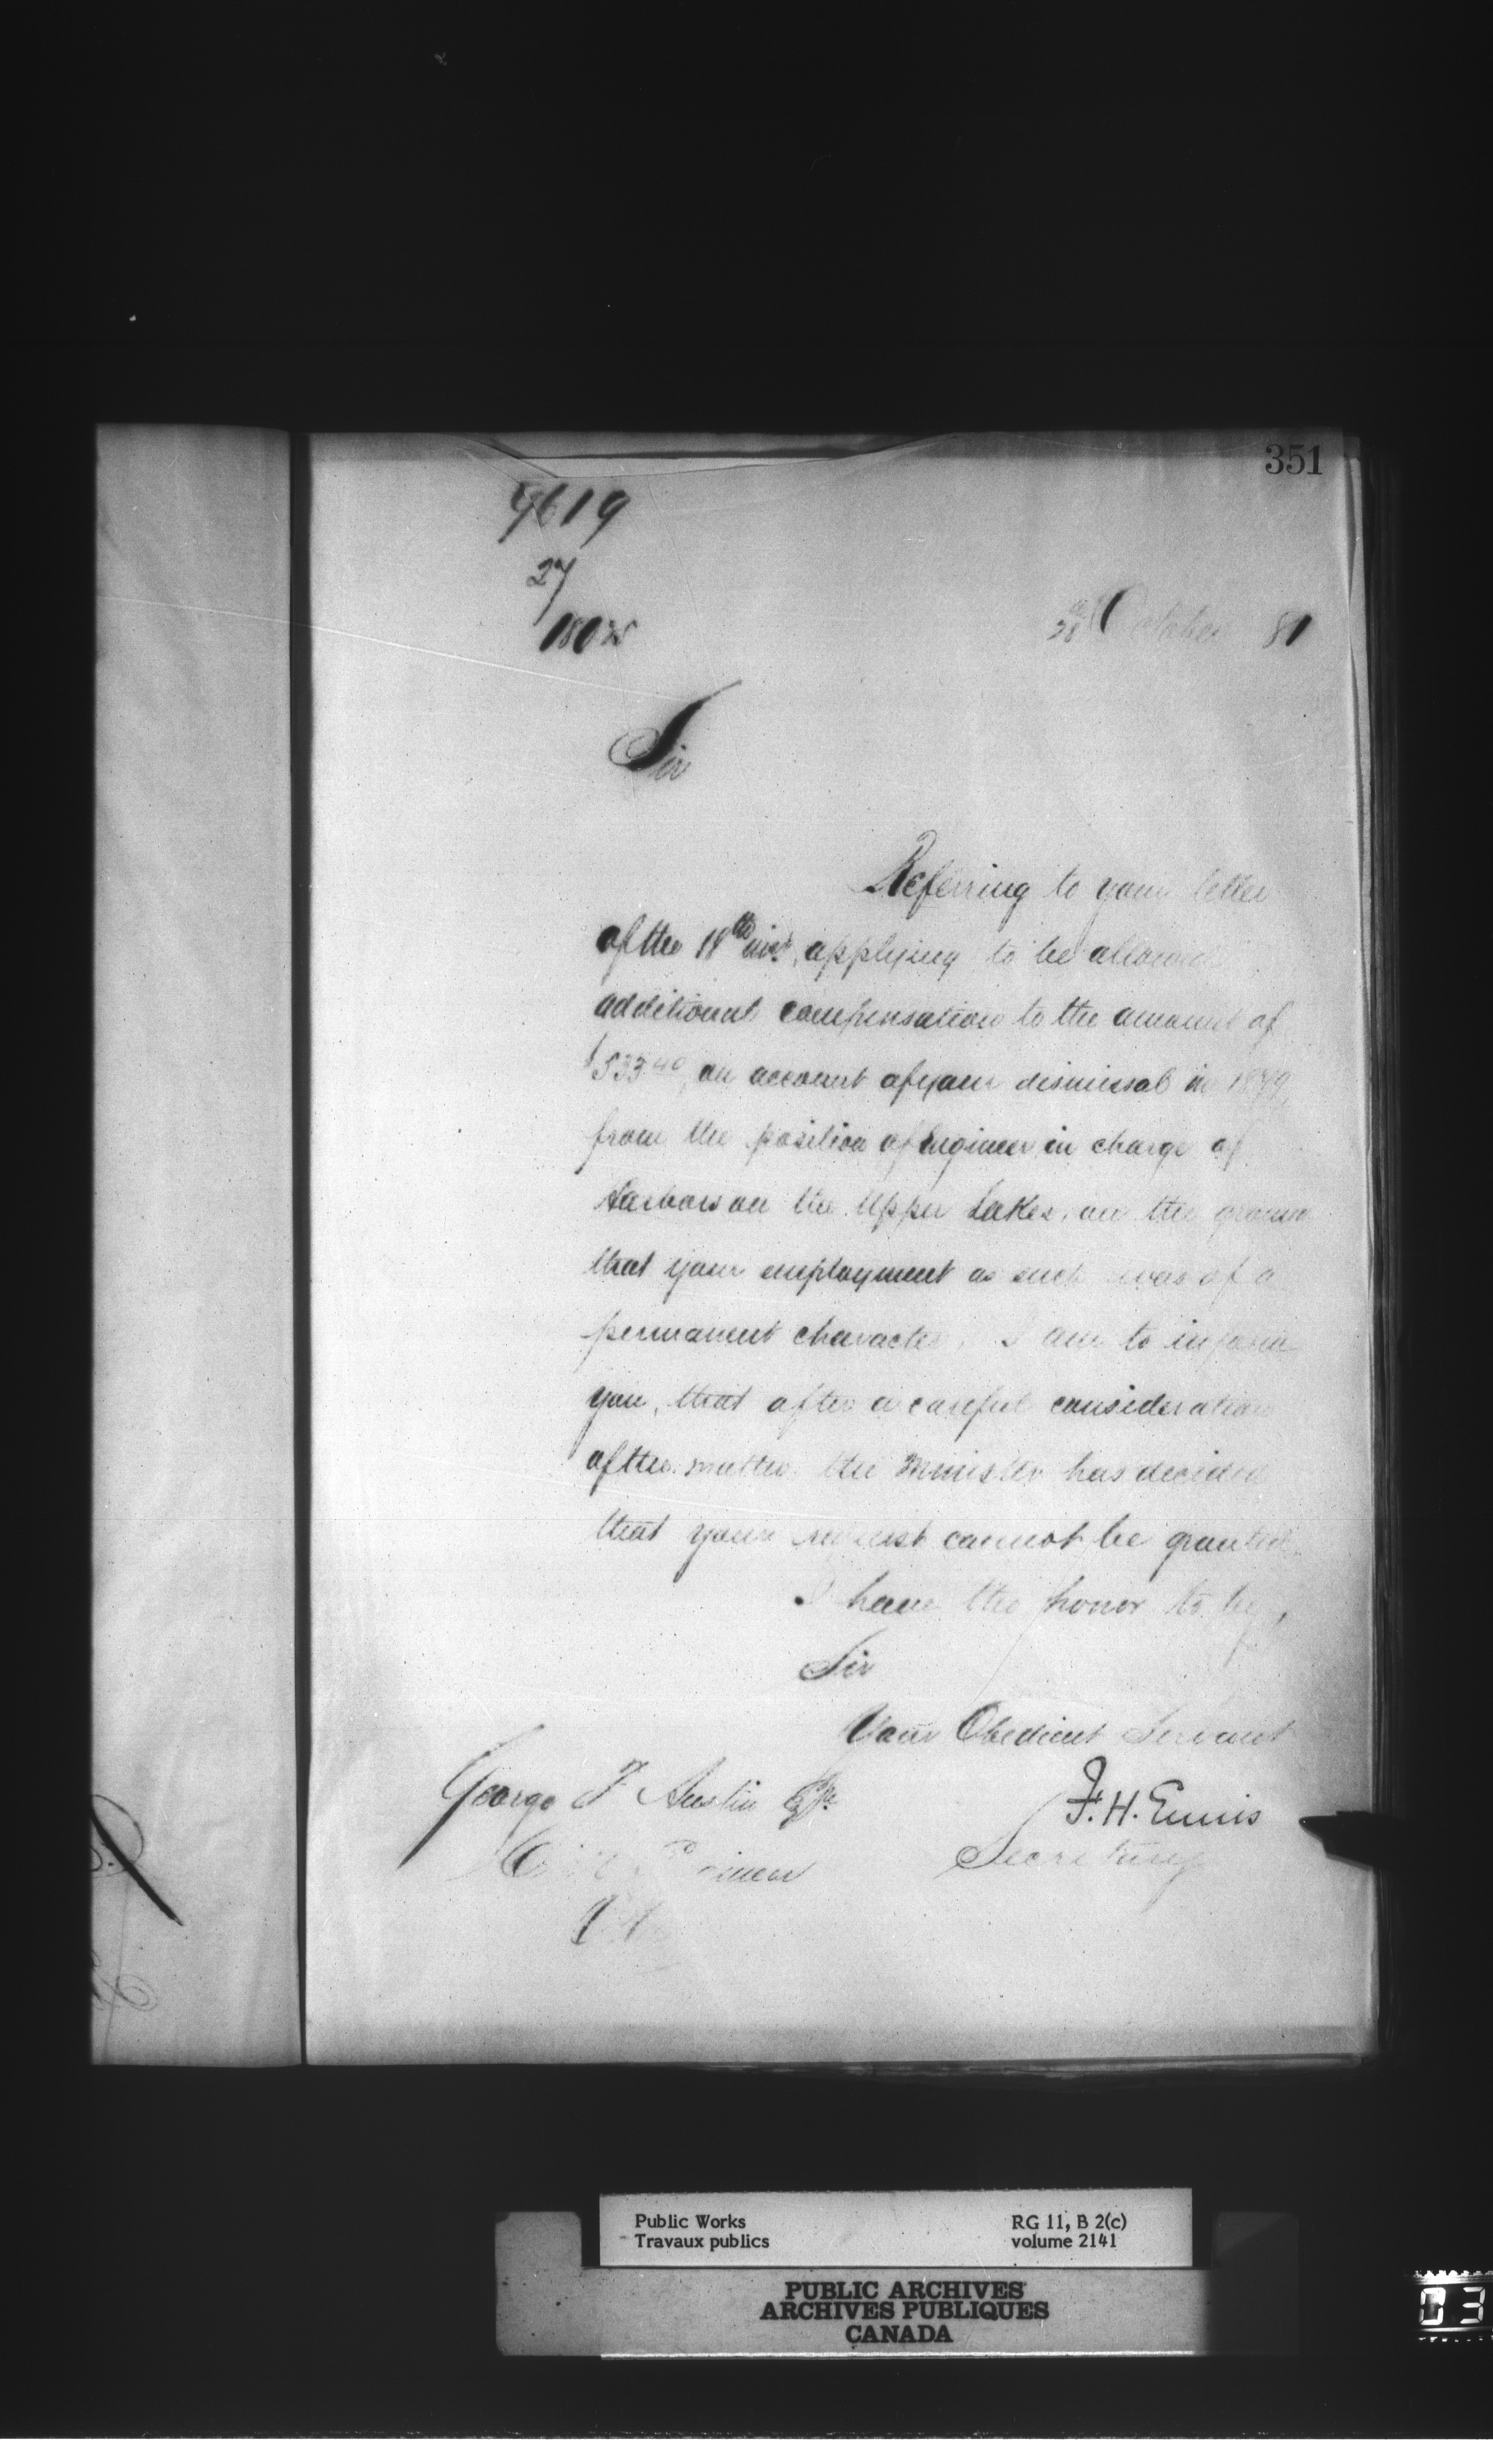 351
9619
27
28 October 81
Sir
Referring to your letter
of the 18th inst, applying to be allowed
additional compensation to the amount of
$533.40, on account of your dismissal in 1879,
from the position of Engineer in charge of
Harbors on the Upper Lakes, on the ground
that your employment as such was of a
permanent character, I am to inform
you, that after a careful consideration
of the matter the Minister has decided
that your request cannot be granted
I have the honor to be,
Sir
Your Obedient Servant
George F Austin Esqr.
F. H. Ennis
Secretary
Public Works
Travaux publics
RG 11, B 2(c)
volume 2141
PUBLIC ARCHIVES
ARCHIVES PUBLIQUES
CANADA
03